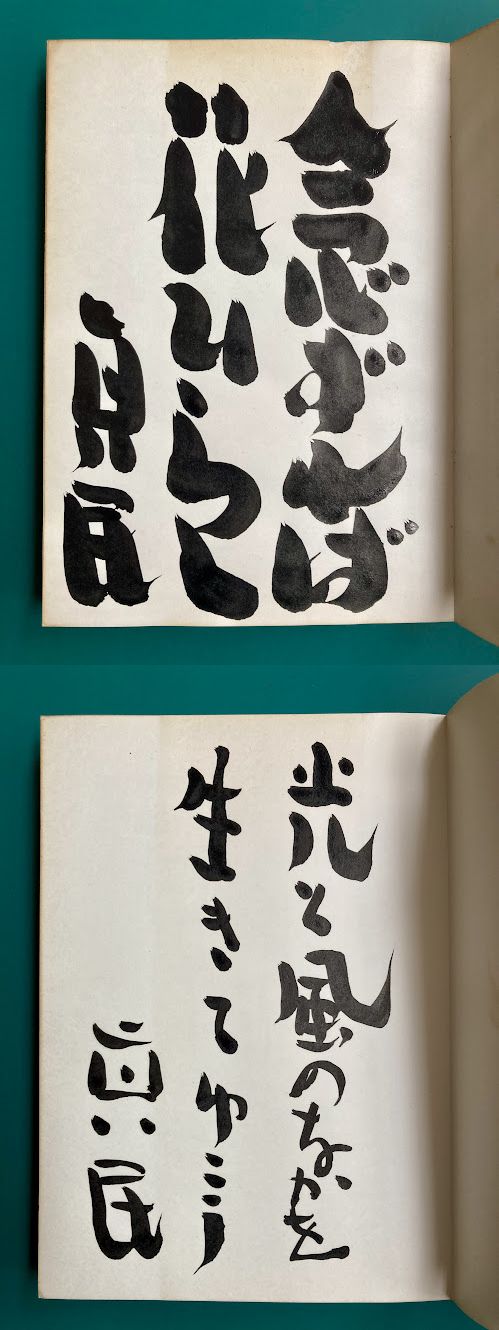 念ずれば
花ひらく
真民
光と風のなかを
生きてゆこう
真民